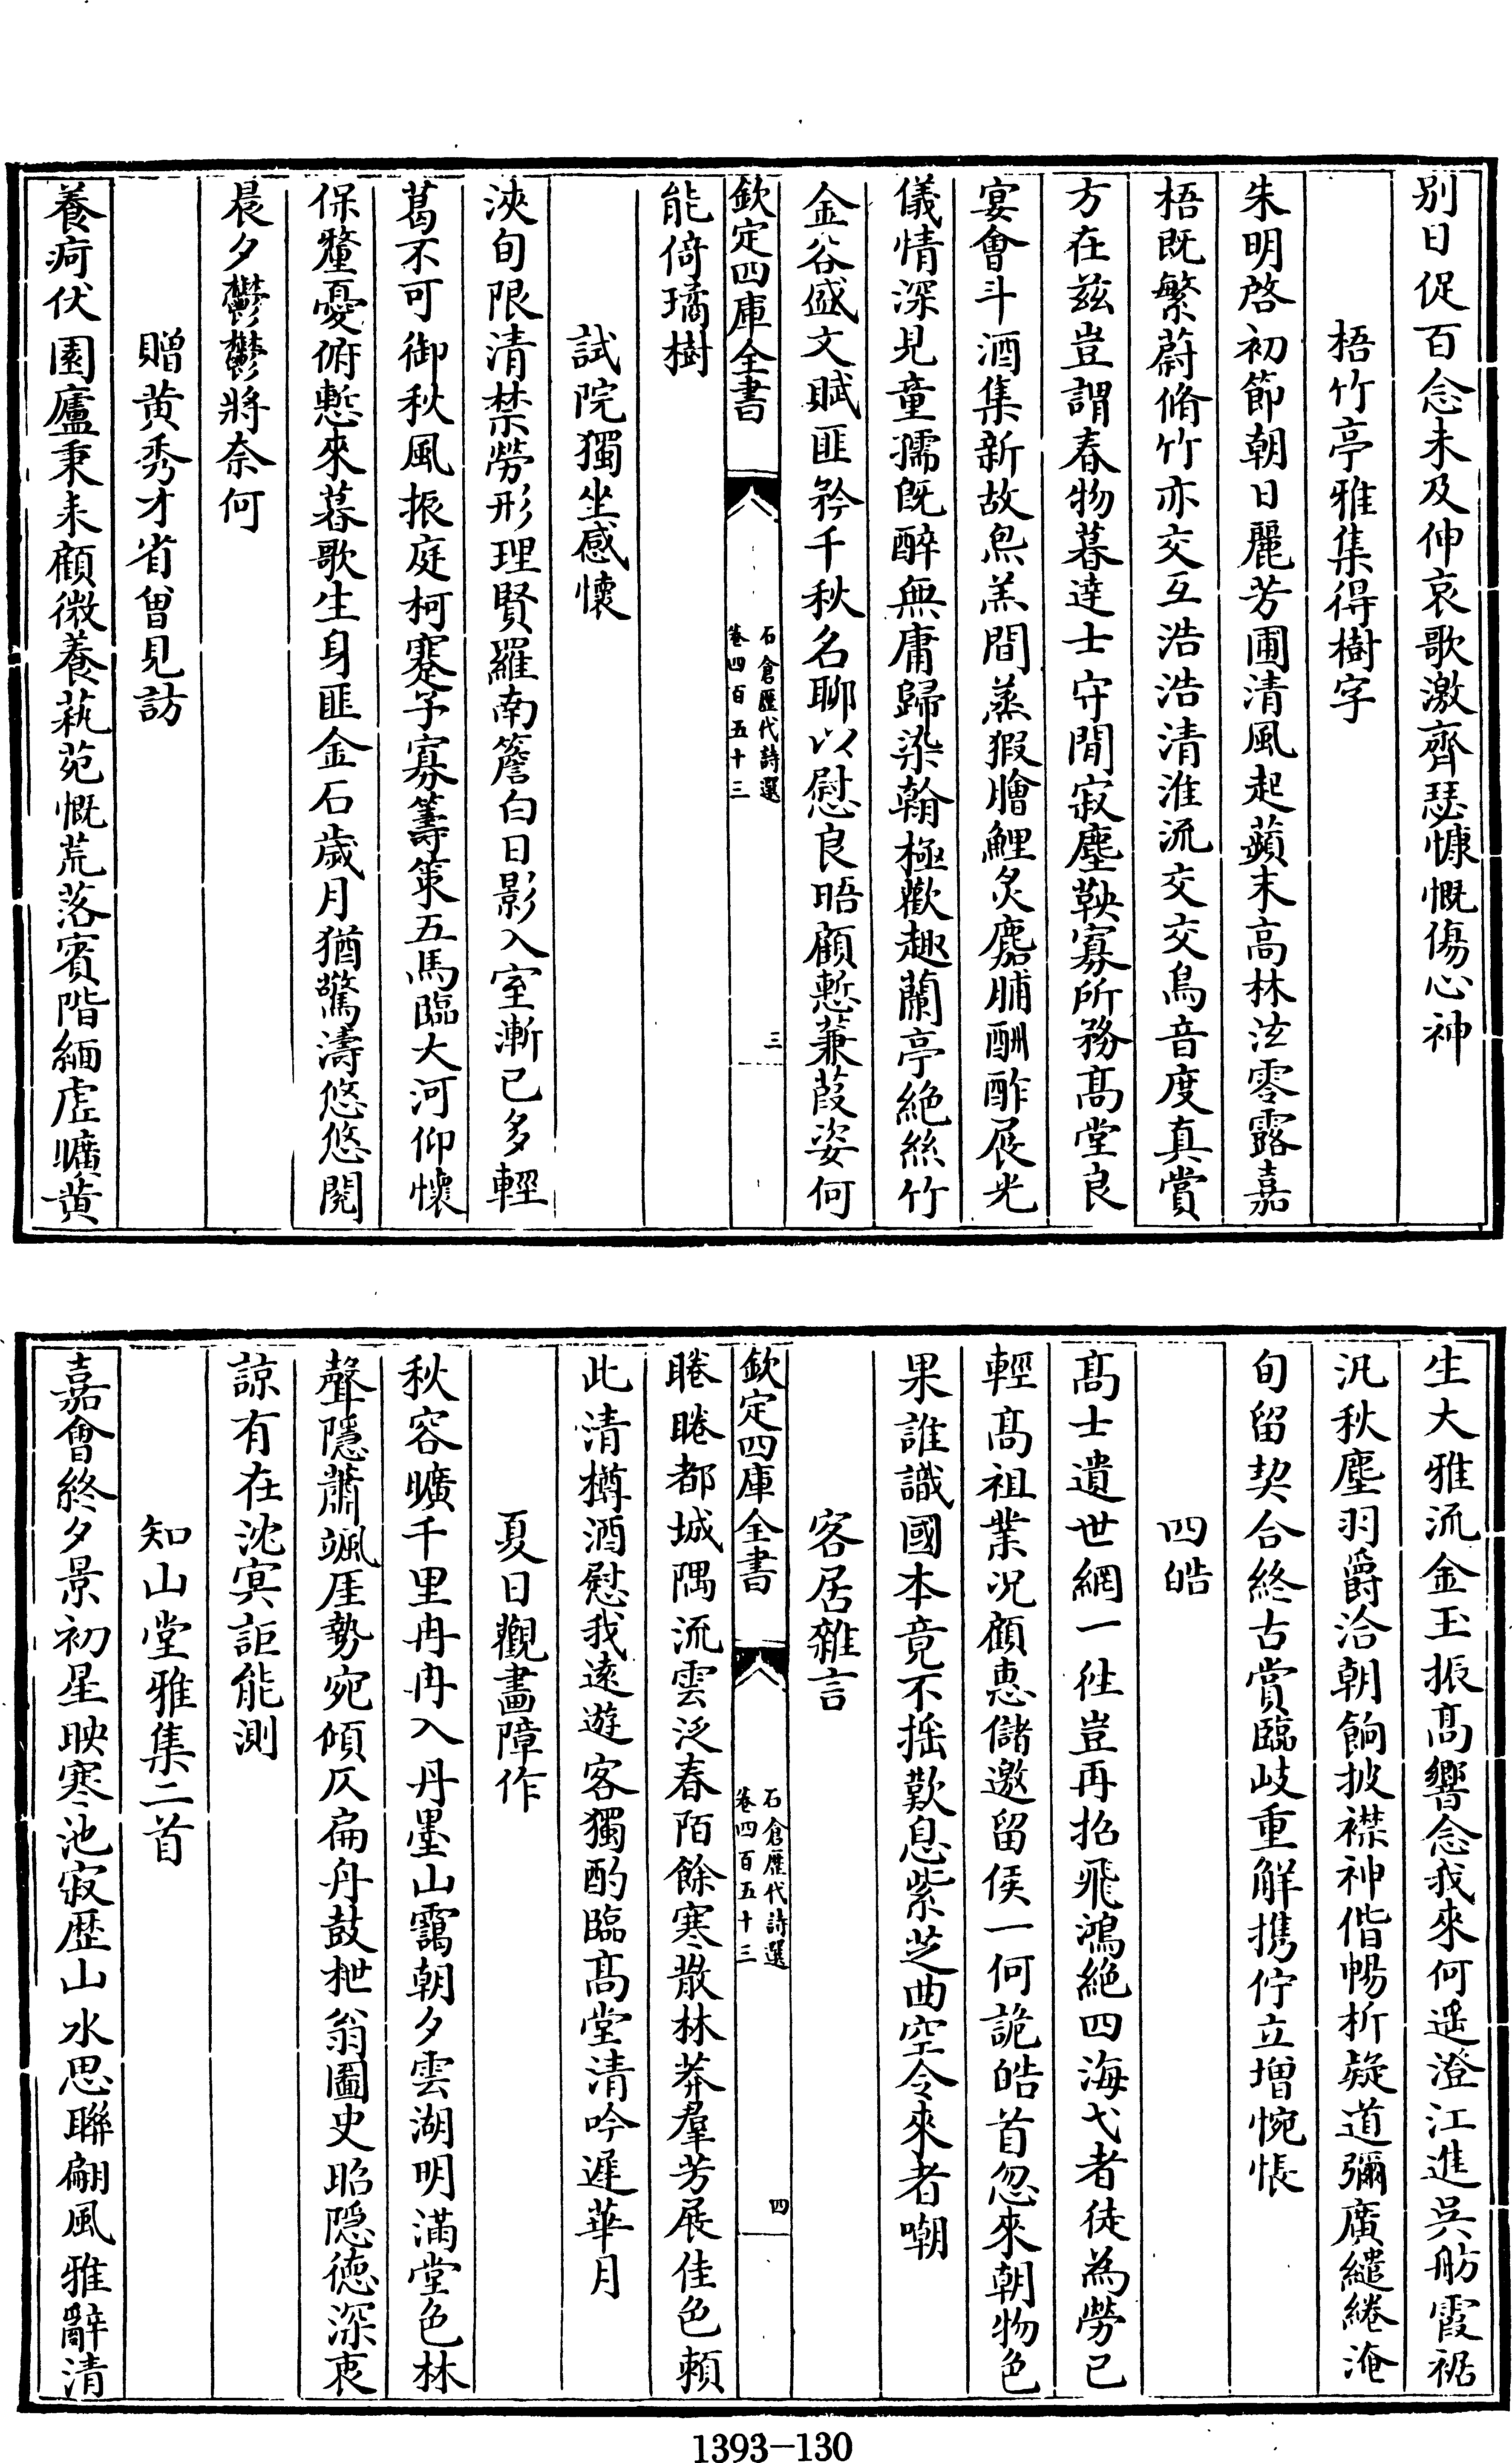 别日促百念未及伸哀歌激齊瑟慷慨傷心神
梧竹亭雅集得樹字
朱明啓初節朝日麗芳圃清風起蘋末高林泫零露嘉
梧既繁蔚脩竹亦交互浩浩清淮流交交鳥音度真賞
方在兹豈謂春物暮達士守閒寂塵鞅寡所務髙堂良
宴會斗酒集新故炰羔間蒸猳膾鯉炙麕脯酬酢展光
儀情深見童孺既醉無庸歸染翰極歡趣蘭亭絶絲竹
金谷盛文賦匪矜千秋名聊以慰良晤顧慙蒹葭姿何
欽定四庫全書
石倉歷代詩選
卷四百五十三
三
能倚璚樹
試院獨坐感懷
浹旬限清禁勞形理賢羅南簷白日影入室漸已多輕
葛不可御秋風振庭柯蹇予寡籌策五馬臨大河仰懷
保釐憂俯慙來暮歌生身匪金石歲月猶驚濤悠悠閱
晨夕鬱鬱將奈何
贈黄秀才省曾見訪
養疴伏園廬秉耒顧微養蓺苑慨荒落賓階緬虚曠黄
生大雅流金玉振髙響念我來何遥澄江進吳舫霞裾
汎秋塵羽爵洽朝餉披襟神偕暢析疑道彌廣繾綣淹
旬留契合終古賞臨岐重解携佇立增惋悵
四皓
髙士遺世網一徃豈再招飛鴻絶四海弋者徒為勞已
輕髙祖業况顧惠儲邀留侯一何詭皓首忽來朝物色
果誰識國本竟不揺歎息紫芝曲空令來者嘲
客居雜言
欽定四庫全書
石倉歷代詩選
卷四百五十三
四
睠睠都城隅流雲泛春陌餘寒散林莽羣芳展佳色頼
此清樽酒慰我逺遊客獨酌臨髙堂清吟遲華月
夏日觀畫障作
秋容曠千里冉冉入丹墨山靄朝夕雲湖明滿堂色林
聲隱蕭颯厓勢宛傾仄扁舟鼓枻翁圖史昭隠徳深衷
諒有在沈冥詎能測
知山堂雅集二首
嘉會終夕景初星映寒池寂歴山水思聯翩風雅辭清
1393—130